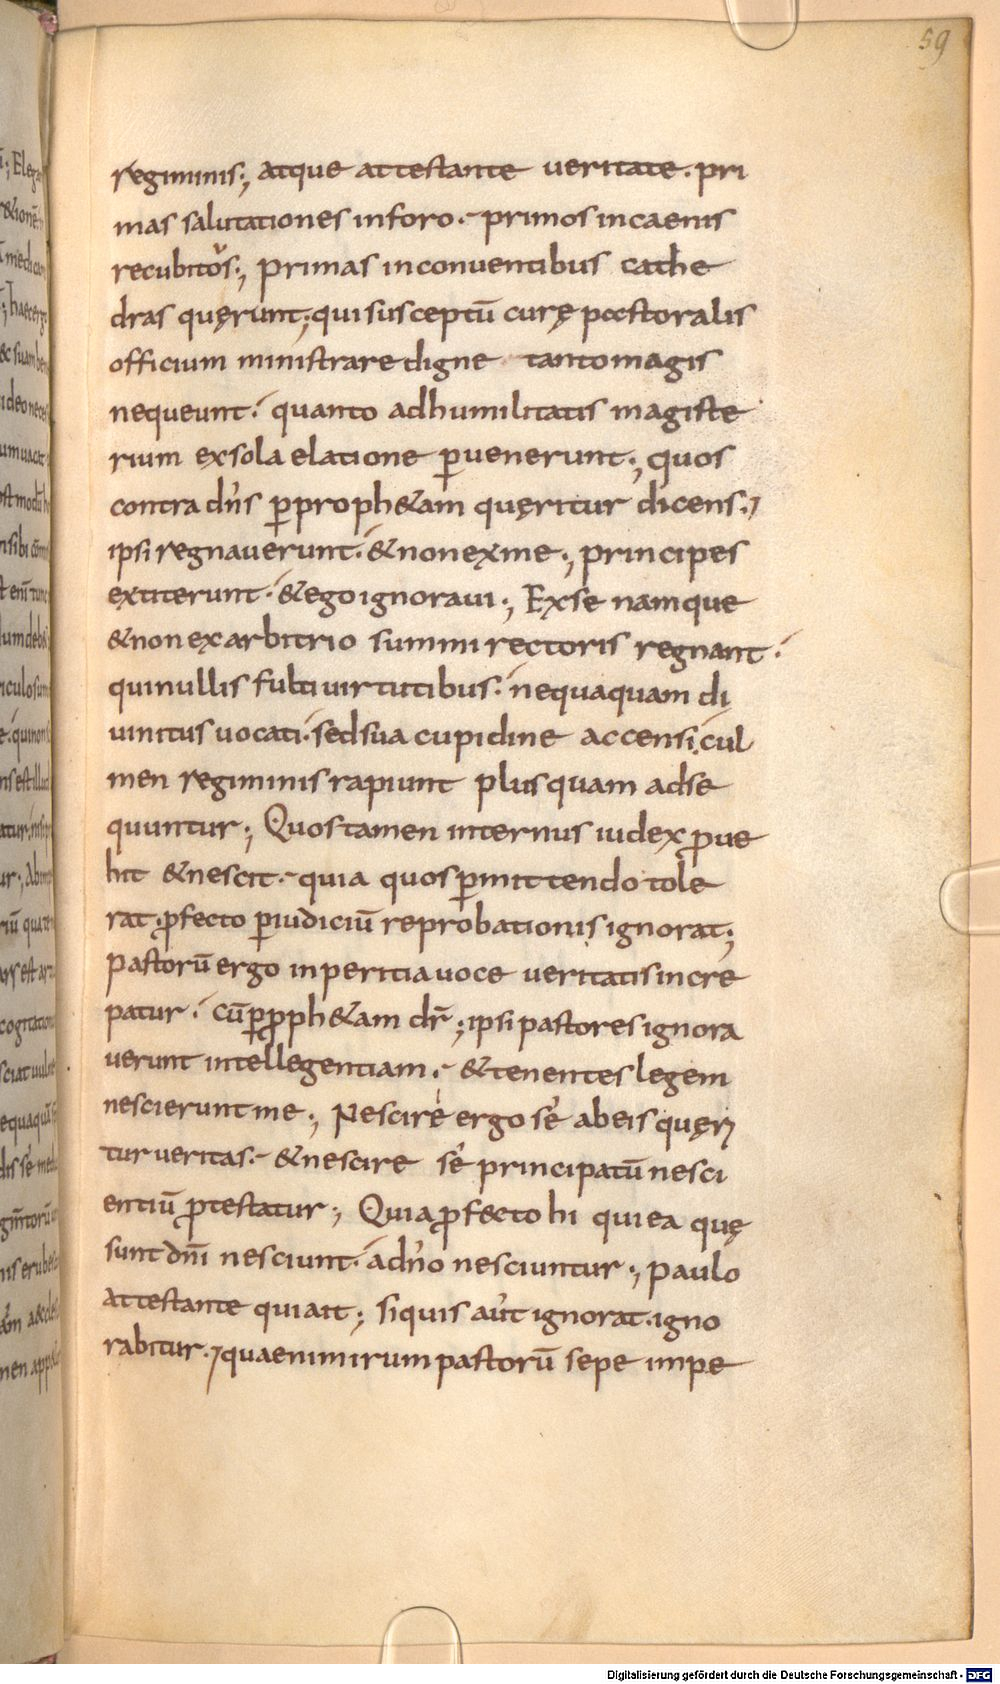 59
regiminis; atque attestante ueritate. pri
mas salutationes inforo. primos incaenis
recubitos; primas inconuentibus cathe
dras quęrunt; quisusceptū curę pastoralis
officium ministrare digne tantomagis
nequeunt. quanto adhumilitatis magiste
rium exsola elatione puenerunt; quos
contra dn̄s pproph&am quęritur dicens;
ipsi regnauerunt. &nonexme; principes
extiterunt. &ego ignoraui; Exse namque
&non exarbitrio summi rectoris regnant.
quinullis fulti uirtutibus. nequaquam di
uinitus uocati. sedsua cupidine accensi. cul
men regiminis rapiunt plus quam adse
quuntur; Quos tamen internus iudex proue
hit &nescit. quia quos pmittendo tole
rat. pfecto piudiciū reprobationis ignorat;
pastorū ergo inperitia uoce ueritatis incre
patur. cū pproph&am dr̄; ipsi pastores ignora
uerunt intellegentiam. &tenentes legem
nescierunt me; Nescire ergo sé abeis quęri
tur ueritas. &nescire sé principatū nesci
entiū ptestatur; Quia pfecto hi qui ea quę
sunt dn̄i nesciunt. adn̄o nesciuntur; paulo
attestante qui ait; siquis aut̄ ignorat. igno
rabitur. quaenimirum pastorū sepe impe
Digitalisierung gefördert durch die Deutsche Forschungsgemeinschaft - DFG